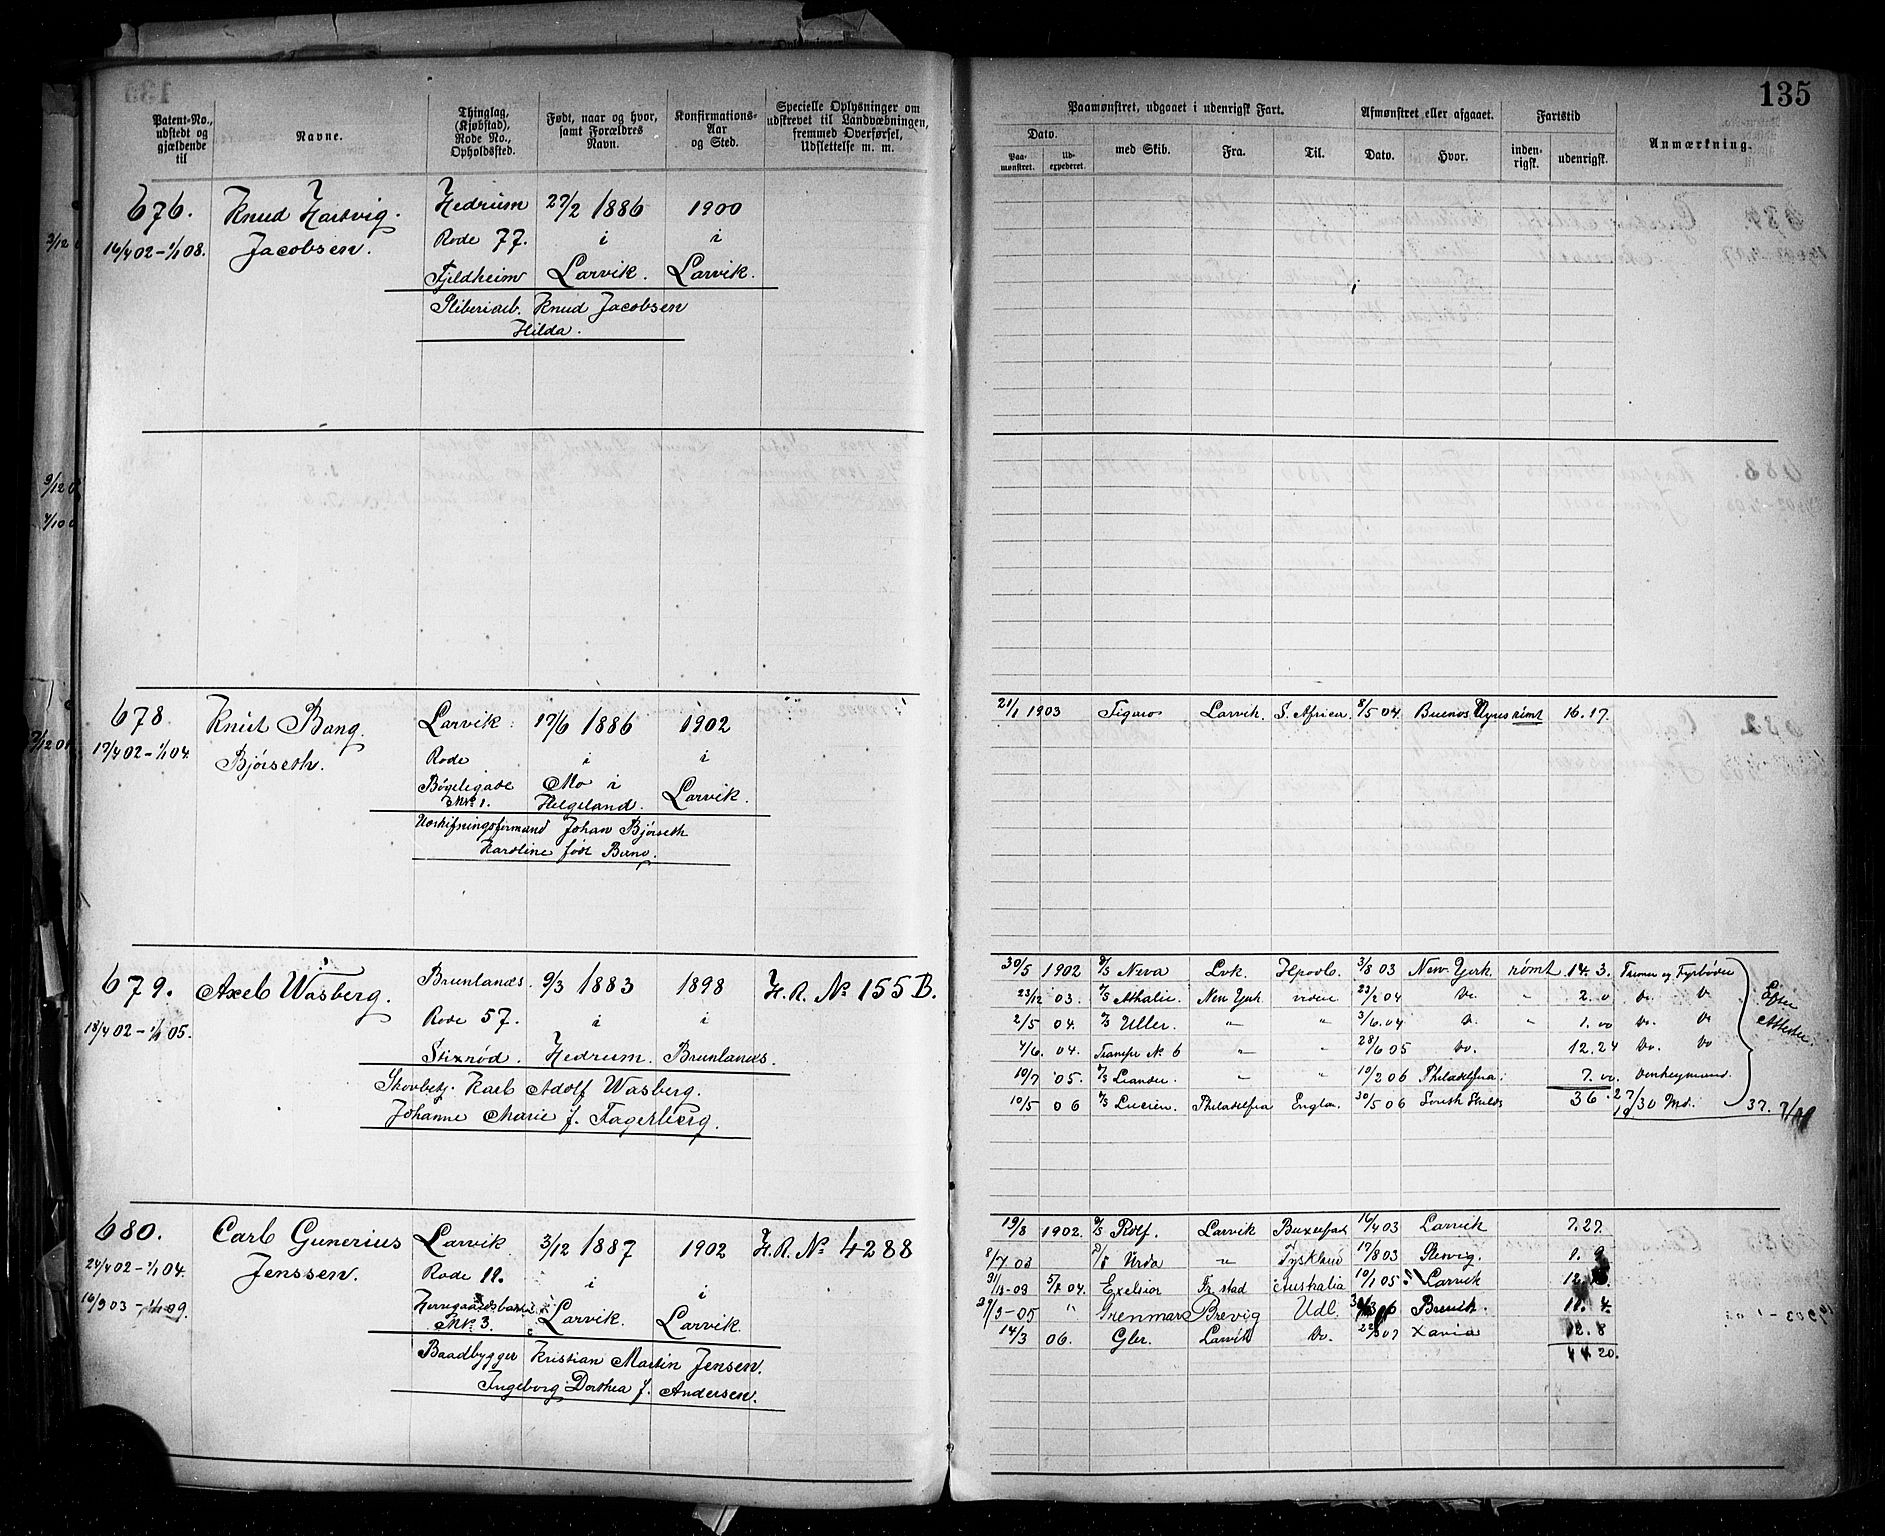 135
Patent-No., udstedt og gjældende til
Navne.
Thinglag, (Kjøbstad), Rode No., Opholdssted.
Født, naar og hvor, samt Forældres Navn.
Konfirmations-Aar og Sted.
Specielle Oplysninger om udskrevet til Landvæbningen, fremmed Overførsel, Udslettelse m. m.
Paamønstret, udgaaet i udenrigsk Fart.
Dato.
Paa-mønstret.
Ud-expederet.
med Skib.
Fra.
Til.
Afmønstret eller afgaaet.
Dato.
Hvor.
Fartstid
inden-rigsk.
udenrigsk.
Anmærkning.
676. Knud Hartvig Hedrum 27/2 1886 1900
16/4 02 - 1/1 08. Jacobsen. Rode 77. i i
Fjeldheim Larvik. Larvik.
Sliberiarb. Knud Jacobsen
Hilda.
678 Knut Bang Larvik. 17/6 1886 1902
17/4 02 - 1/1 04. Bjørseth. Rode i i
Bøgeligade Mo i
No. 1. Helgeland. Larvik.
Johan Bjørseth
født
21/1 1903 Figaro Larvik. S. Africa. 8/5 04. Buenos Ayres rømt 16.17.
679. Axel Wasberg. Brunlanes. 9/3 1883 1898 H.R. No 155 B.
18/4 02 - 1/1 05. Rode 57. i i
Stixrød. Hedrum. Brunlanes.
Karl Adolf Wasberg.
Johanne Marie f. Fagerberg.
30/5 1902 D/S Neva Lvk. 3/8 03 New York rømt 14. 3.
23/12 03. D/S Athalie. New York 23/2 04 Do. "
2/5 04. D/S Uller. " " 3/6. 04 Do. 1. 00 Do. Do
4/6. 04. No 6 " " 28/6 05 Do. 12.24 Do. Do
10/7 05. D/S Leander " " 10/2 06 Philadelfia. 7. 00. Donkeymand.
10/5 06 D/S Lucien. Philadelfia 30/5 06 36. 27
Efter
Attester
/30 Md. 37.
680. Carl Gunerius Larvik 3/12 1887 1902 H.R. No 4288
24/4 02 - 1/1 04. Jenssen. Rode 11. i i
16/9 03 - 1/1 09.
No. 3. Larvik. Larvik.
Baadbygger Kristian Martin Jensen.
Ingeborg Dorthea f. Andersen.
19/8 1902. Rolf. Larvik 16/4 03 Larvik 7.27.
8/7 03 " Tyskland 17/8 03
5/2 04. Exelsior Fr. stad Australia 10/1 05 Larvik
" Grenmar Brevig Udl. Brevik. 11. 4.
14/3 06. Gler. Larvik Do. 12.8
44 20.